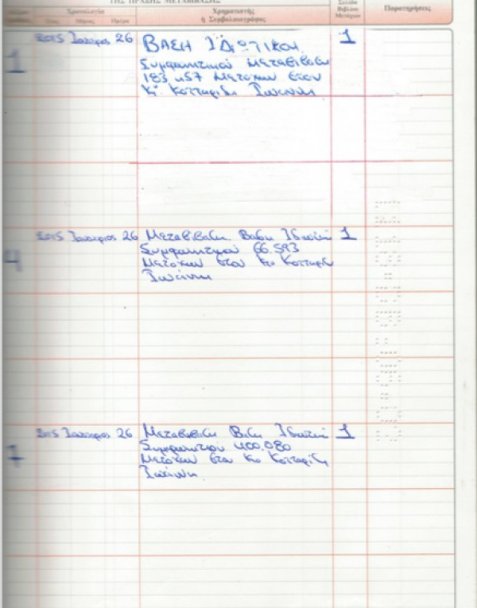 ΤΗΣ ΠΡΑΞΗΣ ΜΕΤΑΒΙΒΑΣΗΣ
Χρονολογία
Έτος Μήνας Ημέρα
Χρηματιστής
ή Συμβολαιογράφος
Σελίδα
Βιβλίου
Μετόχων
Παρατηρήσεις
1
2015 Ιανουάριος 26
ΒΑΣΗ ΙΔΙΩΤΙΚΟΥ
Συμφωνητικού Μεταβίβαση
183 457 Μετοχών στον
Κο Κοτταρίδη Ιωάννη
1
4
2015 Ιανουάριος 26
Μεταβίβαση Βάση Ιδιωτικ
Συμφωνητικού 66.593
Μετοχών στον Κο Κοτταρίδη
Ιωάννη
1
7
2015 Ιανουάριος 26
Μεταβίβαση Βάση Ιδιωτικ
Συμφωνητικου 400.080
Μετοχών στον Κο Κοτταρίδη
Ιωάννη
1